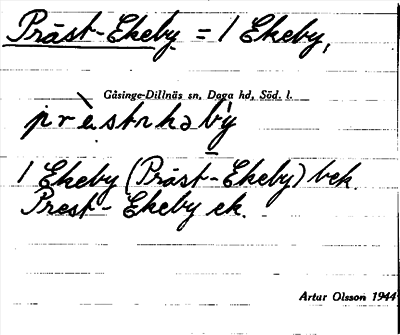 Präst-Ekeby = 1 Ekeby,
Gåsinge-Dillnäs sn, Daga hd, Söd. l.
prèstnkə bý
1 Ekeby (Präst-Ekeby) bek.
Prest-Ekeby ek.
Artur Olsson 1944